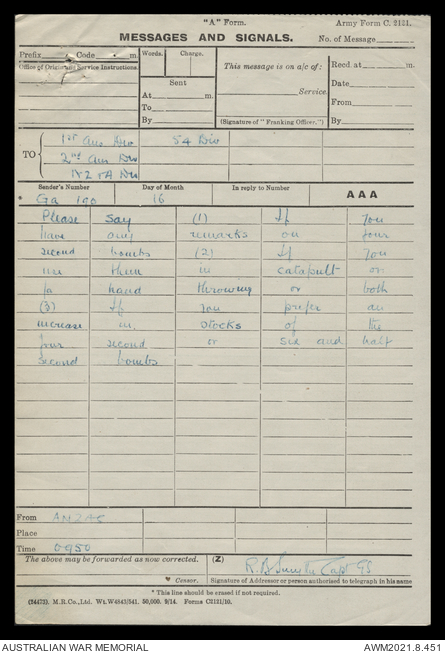 "A" Form. Army Form C. 2121.
MESSAGES AND SIGNALS. No. of Message
Prefix Code m. Words. Charge. This message is on a/c of: Recd. at m.
Office of Origin and Service Instructions.
Sent Date
At m. Service. From
To
By (Signature of "Franking Officer.") By
TO 1st Aus Div 54 Div
2nd Aus Div
NZ & A Div
Sender's Number Day of Month In reply to Number AAA
* Ga 190 16
Please say (1) If you
have any remarks on four
second bombs (2) If you
use them in catapult or
for hand throwing or both
(3) If you prefer an
increase in stocks of the
four second or six and half
second bombs
From ANZAC
Place
Time 0950
The above may be forwarded as now corrected. (Z) R. B. Smith Capt GS
Censor. Signature of Addressor or person authorised to telegraph in his name
* This line should be erased if not required.
(24473). M.R.Co.,Ltd. Wt.W4843/541. 50,000. 9/14. Forms C2121/10.
AUSTRALIAN WAR MEMORIAL AWM2021.8.451